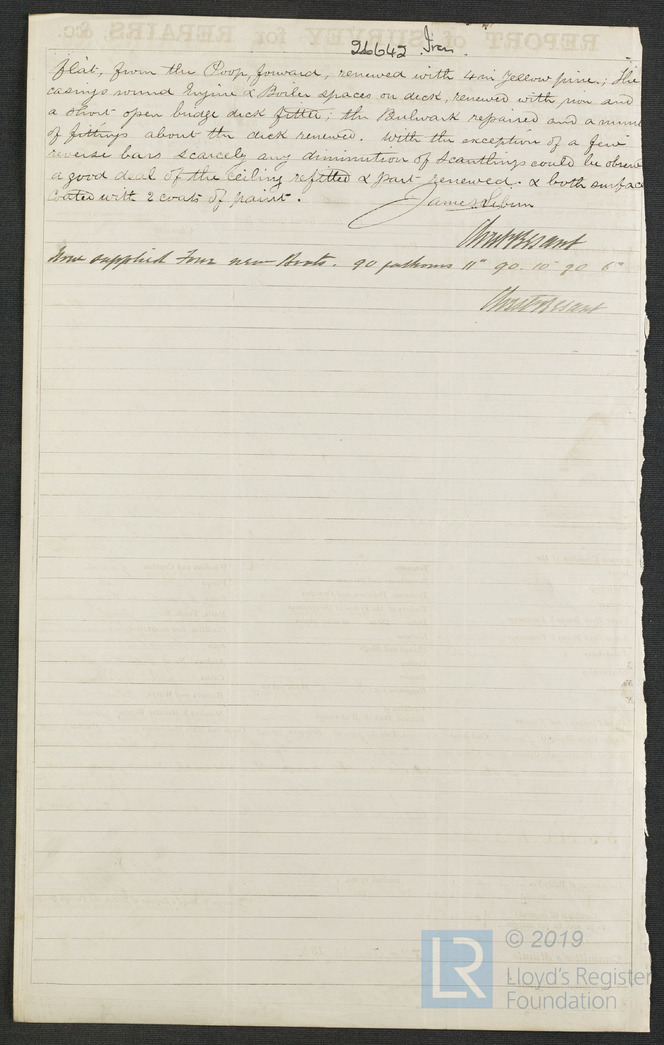 26642 Iron
flat, from the Poop, forward, renewed with 4 in yellow pine; the
casings round Engine & Boiler spaces on deck, renewed with iron and
a short open bridge deck fitted; the Bulwark repaired and a num
of fittings about the deck renewed. With the exception of a few
reverse bars scarcely any diminution of scantlings could be obser
a good deal of the ceiling refitted & part renewed. & both surfac
coated with 2 coats of paint.
James
Now supplied Four new Boats. 90 fathoms 11" 90. 10" 90 6"
© 2019
Lloyd's Register
Foundation
LR
REPORT of SURVEY for REPAIRS, &c.